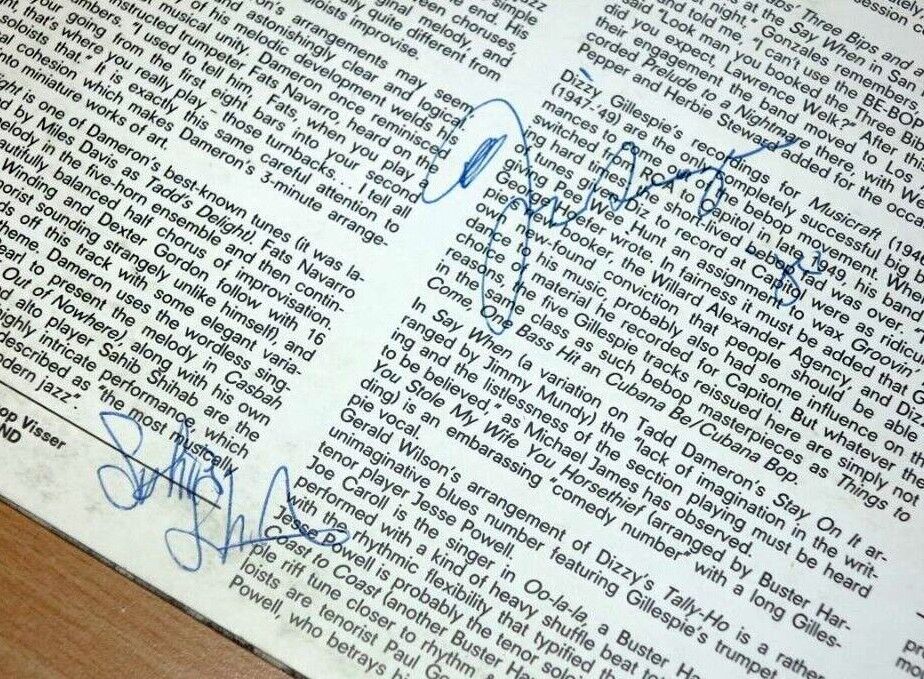 jazz
simple
original melody, and
choruses,
end. His
quite different from
soloists improvise.
Dameron's arrangements may seem
astonishingly clear and logical.
of his melodic development welds his
musical unity. Dameron once reminisced
constructed trumpeter Fats Navarro, heard on the
numbers. "I used to tell him, 'Fats, when you play a
your going from the first eight bars into your second
that's where you really play - those turnbacks... I tell all
soloists that." It is exactly this same careful attention to
cohesion which makes Dameron's 3-minute arrange-
into miniature works of art.
is one of Dameron's best-known tunes (it was la-
by Miles Davis as Tadd's Delight). Fats Navarro
melody in the five-horn ensemble and then contin-
balanced half chorus of improvisation.
Winding and Dexter Gordon follow with 16
sounding strangely unlike himself), and
off this track with some elegant varia-
Dameron uses the wordless sing-
to present the melody in Casbah
Out of Nowhere), along with his own
alto player Sahib Shihab are the
intricate performance which
described as "the most musically
jazz".
Visser
Sahib Shihab
Three Bips and
Say When in San
night", Gonzales remembers.
and told me, "I can't use the BE-BOP
said "Look man, you booked the Three B
did you expect, Lawrence Welk?" After th
their engagement the band moved to Los
corded Prelude to a Nightmare there, with
Pepper and Herbie Stewart added for the occ
Dizzy Gillespie's recordings for Musicraft (194
(1947-'49) are the only completely successful big
mances to come from the bebop movement. When
switched from RCA to Capitol in late 1949 his ban
ing hard times. The short-lived "bebop" fad was as
gives Pee Wee Hunt an assignment to wax Groovin'
tunes given Diz to record at Capitol were as ridic
George Hoefer wrote. In fairness it must be added that
Pete Cooker, the Willard Alexander Agency, and Diz
own new-found conviction that people should be able
dance to his music, probably also had some influence on
choice of material he recorded for Capitol. But whatever the
reasons, the five Gillespie tracks reissued here are simply not
in the same class as such bebop masterpieces as Things to
Come, One Bass Hit an Cubana Be/Cubana Bop.
In Say When (a variation on Tadd Dameron's Stay On It ar-
ranged by Jimmy Mundy) the "lack of imagination in the writ-
ing and the listlessness of the section playing must be heard
to be believed," as Michael James has observed.
You Stole My Wife You Horsethief (arranged by Buster Har-
ding) is an embarassing "comedy number" with a long Gilles-
pie vocal.
Gerald Wilson's arrangement of Dizzy's Tally-Ho is a rather
unimaginative blues number featuring Gillespie's trumpet
tenor player Jesse Powell.
Joe Caroll is the singer in Oo-la-la, a Buster Ha
performed with a kind of heavy shuffle beat
with the rhythmic flexibility that typified
Jesse Powell is probably the tenor solo
Coast to Coast (another Buster Ha
ple riff tune closer to rhythm
loists are tenorist Paul Go
Powell, who betrays hi